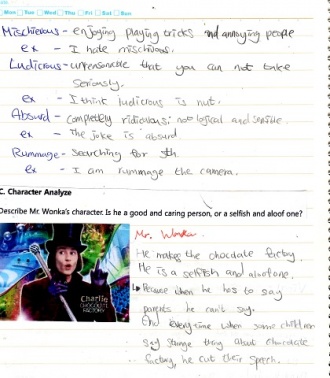 Mon Tue Wed Thu Fri Sat Sun
Mischievous - enjoying playing tricks and annoying people
ex - I hate mischivous.
Ludicrous - unreasonable that you can not take
Seriously.
ex - I think ludicrous is nut.
Absurd - completely ridiculous; not logical and sensible
ex - the joke is absurd.
Rummage - Searching for sth.
ex - I am rummage the camera.
C. Character Analyze
Describe Mr. Wonka's character. Is he a good and caring person, or a selfish and aloof one?
Mr. Wonka.
He makes the chocolate factory.
He is a selfish and aloof one.
Because when he has to say
parents he can't say.
And everytime when some children
say strange they about chocolate
factory, he cut their speech.
Charlie
CHOCOLATE
FACTORY